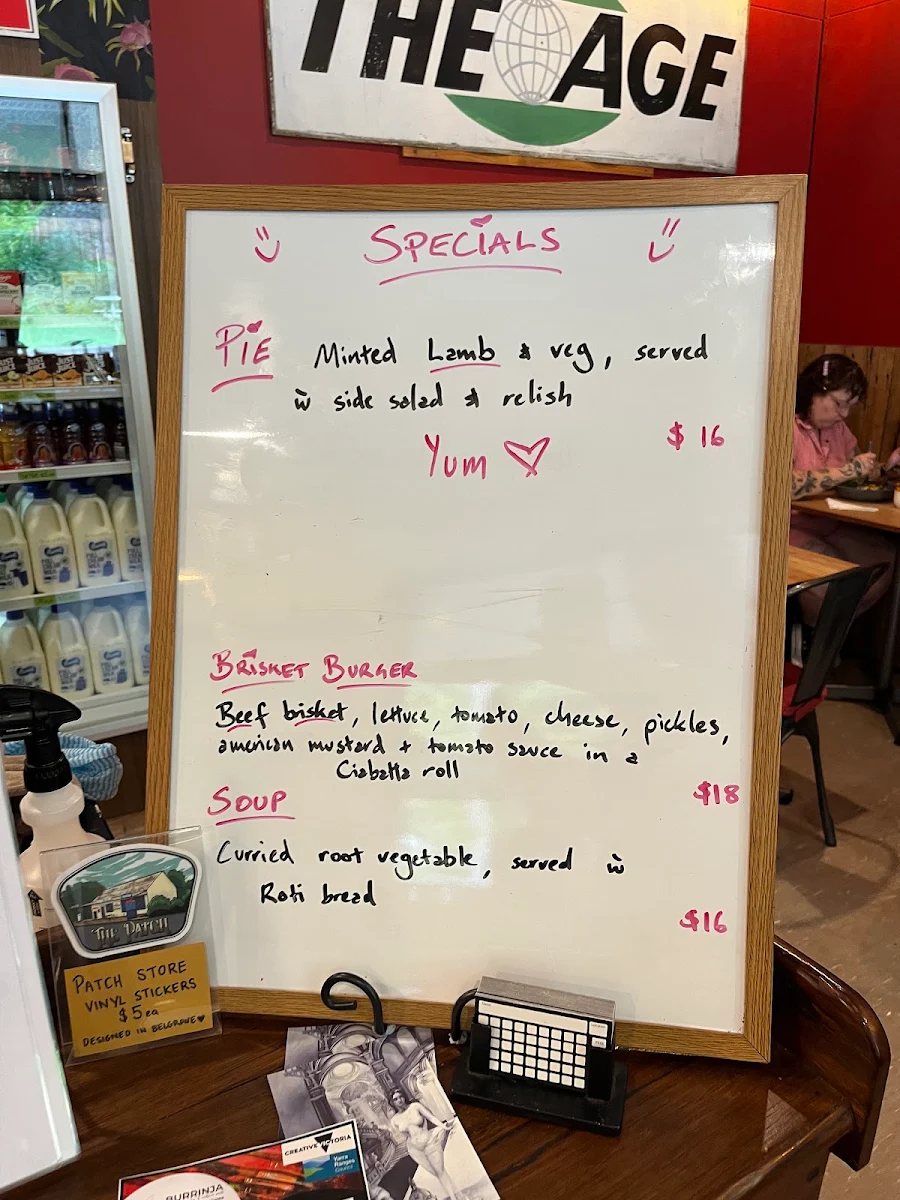 THE AGE
SPECIALS
PIE Minted Lamb & veg, served
w side salad & relish
$16
Yum
BRISKET BURGER
Beef brisket, lettuce, tomato, cheese, pickles,
american mustard + tomato sauce in a
Ciabatta roll
$18
SOUP
Curried root vegetable, served w
Roti bread
$16
THE PATCH
PATCH STORE
VINYL STICKERS
$5 ea
DESIGNED IN BELGRAVE
CREATIVE VICTORIA
Yarra
Ranges
Council
BURRINJA